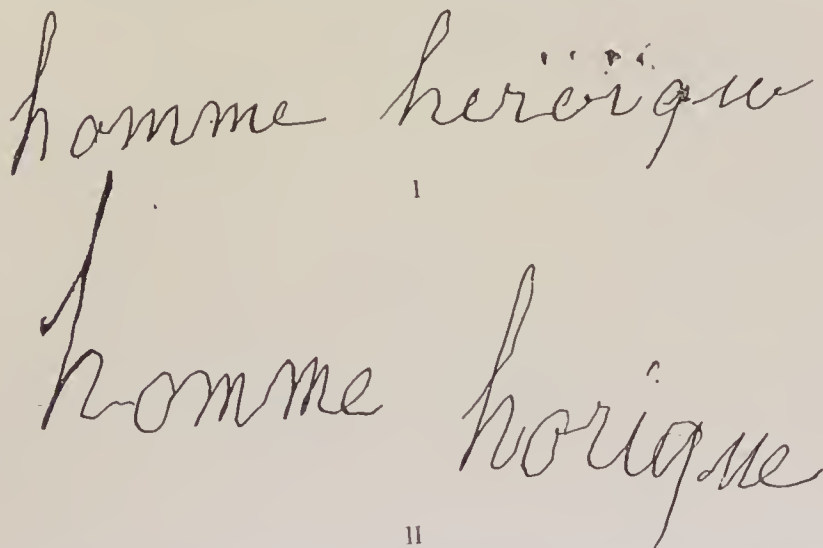 homme heroïque
I
homme horique
II